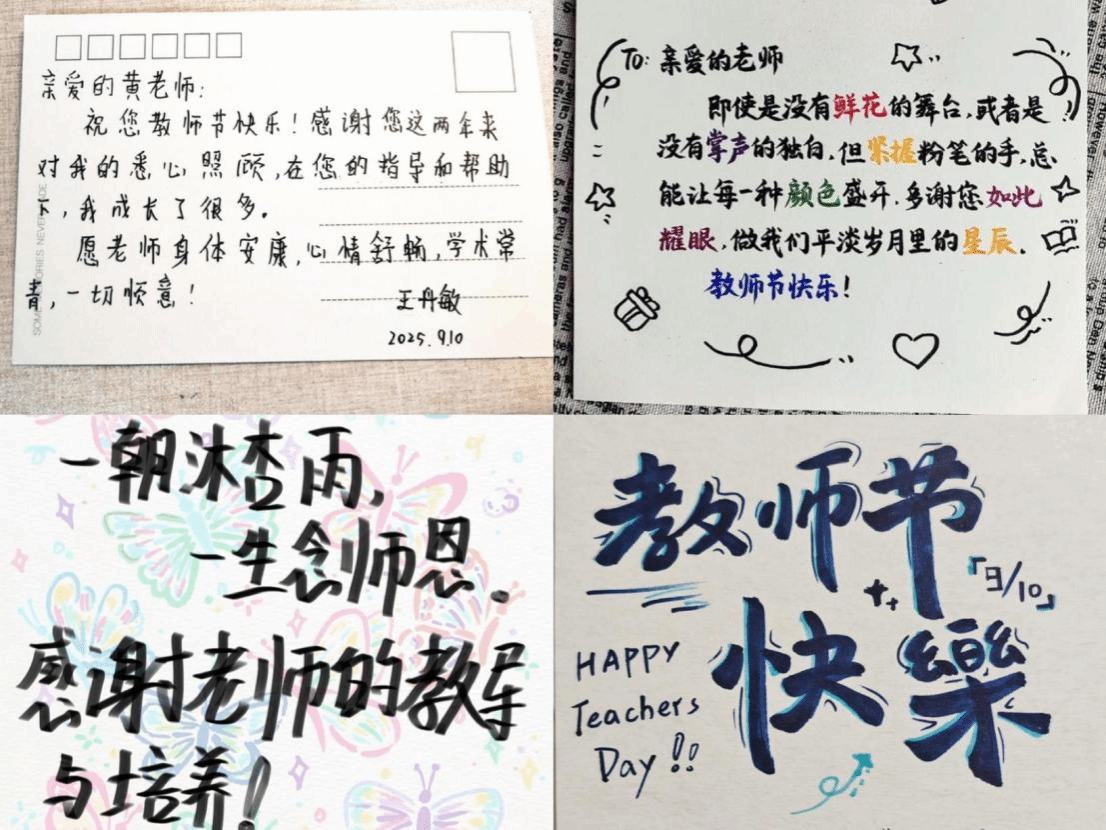 亲爱的黄老师:
祝您教师节快乐!感谢您这两年来
对我的悉心照顾,在您的指导和帮助
下,我成长了很多。
愿老师身体安康,心情舒畅,学术常
青,一切顺意!
王丹敏
2025.9.10
To: 亲爱的老师
即使是没有鲜花的舞台,或者是
没有掌声的独白,但紧握粉笔的手,总
能让每一种颜色盛开.多谢您如此
耀眼,做我们平淡岁月里的星辰.
教师节快乐!
一朝沐杏雨,
一生念师恩.
感谢老师的教导
与培养!
教师节
「9/10」
快樂
HAPPY
Teachers
Day!!